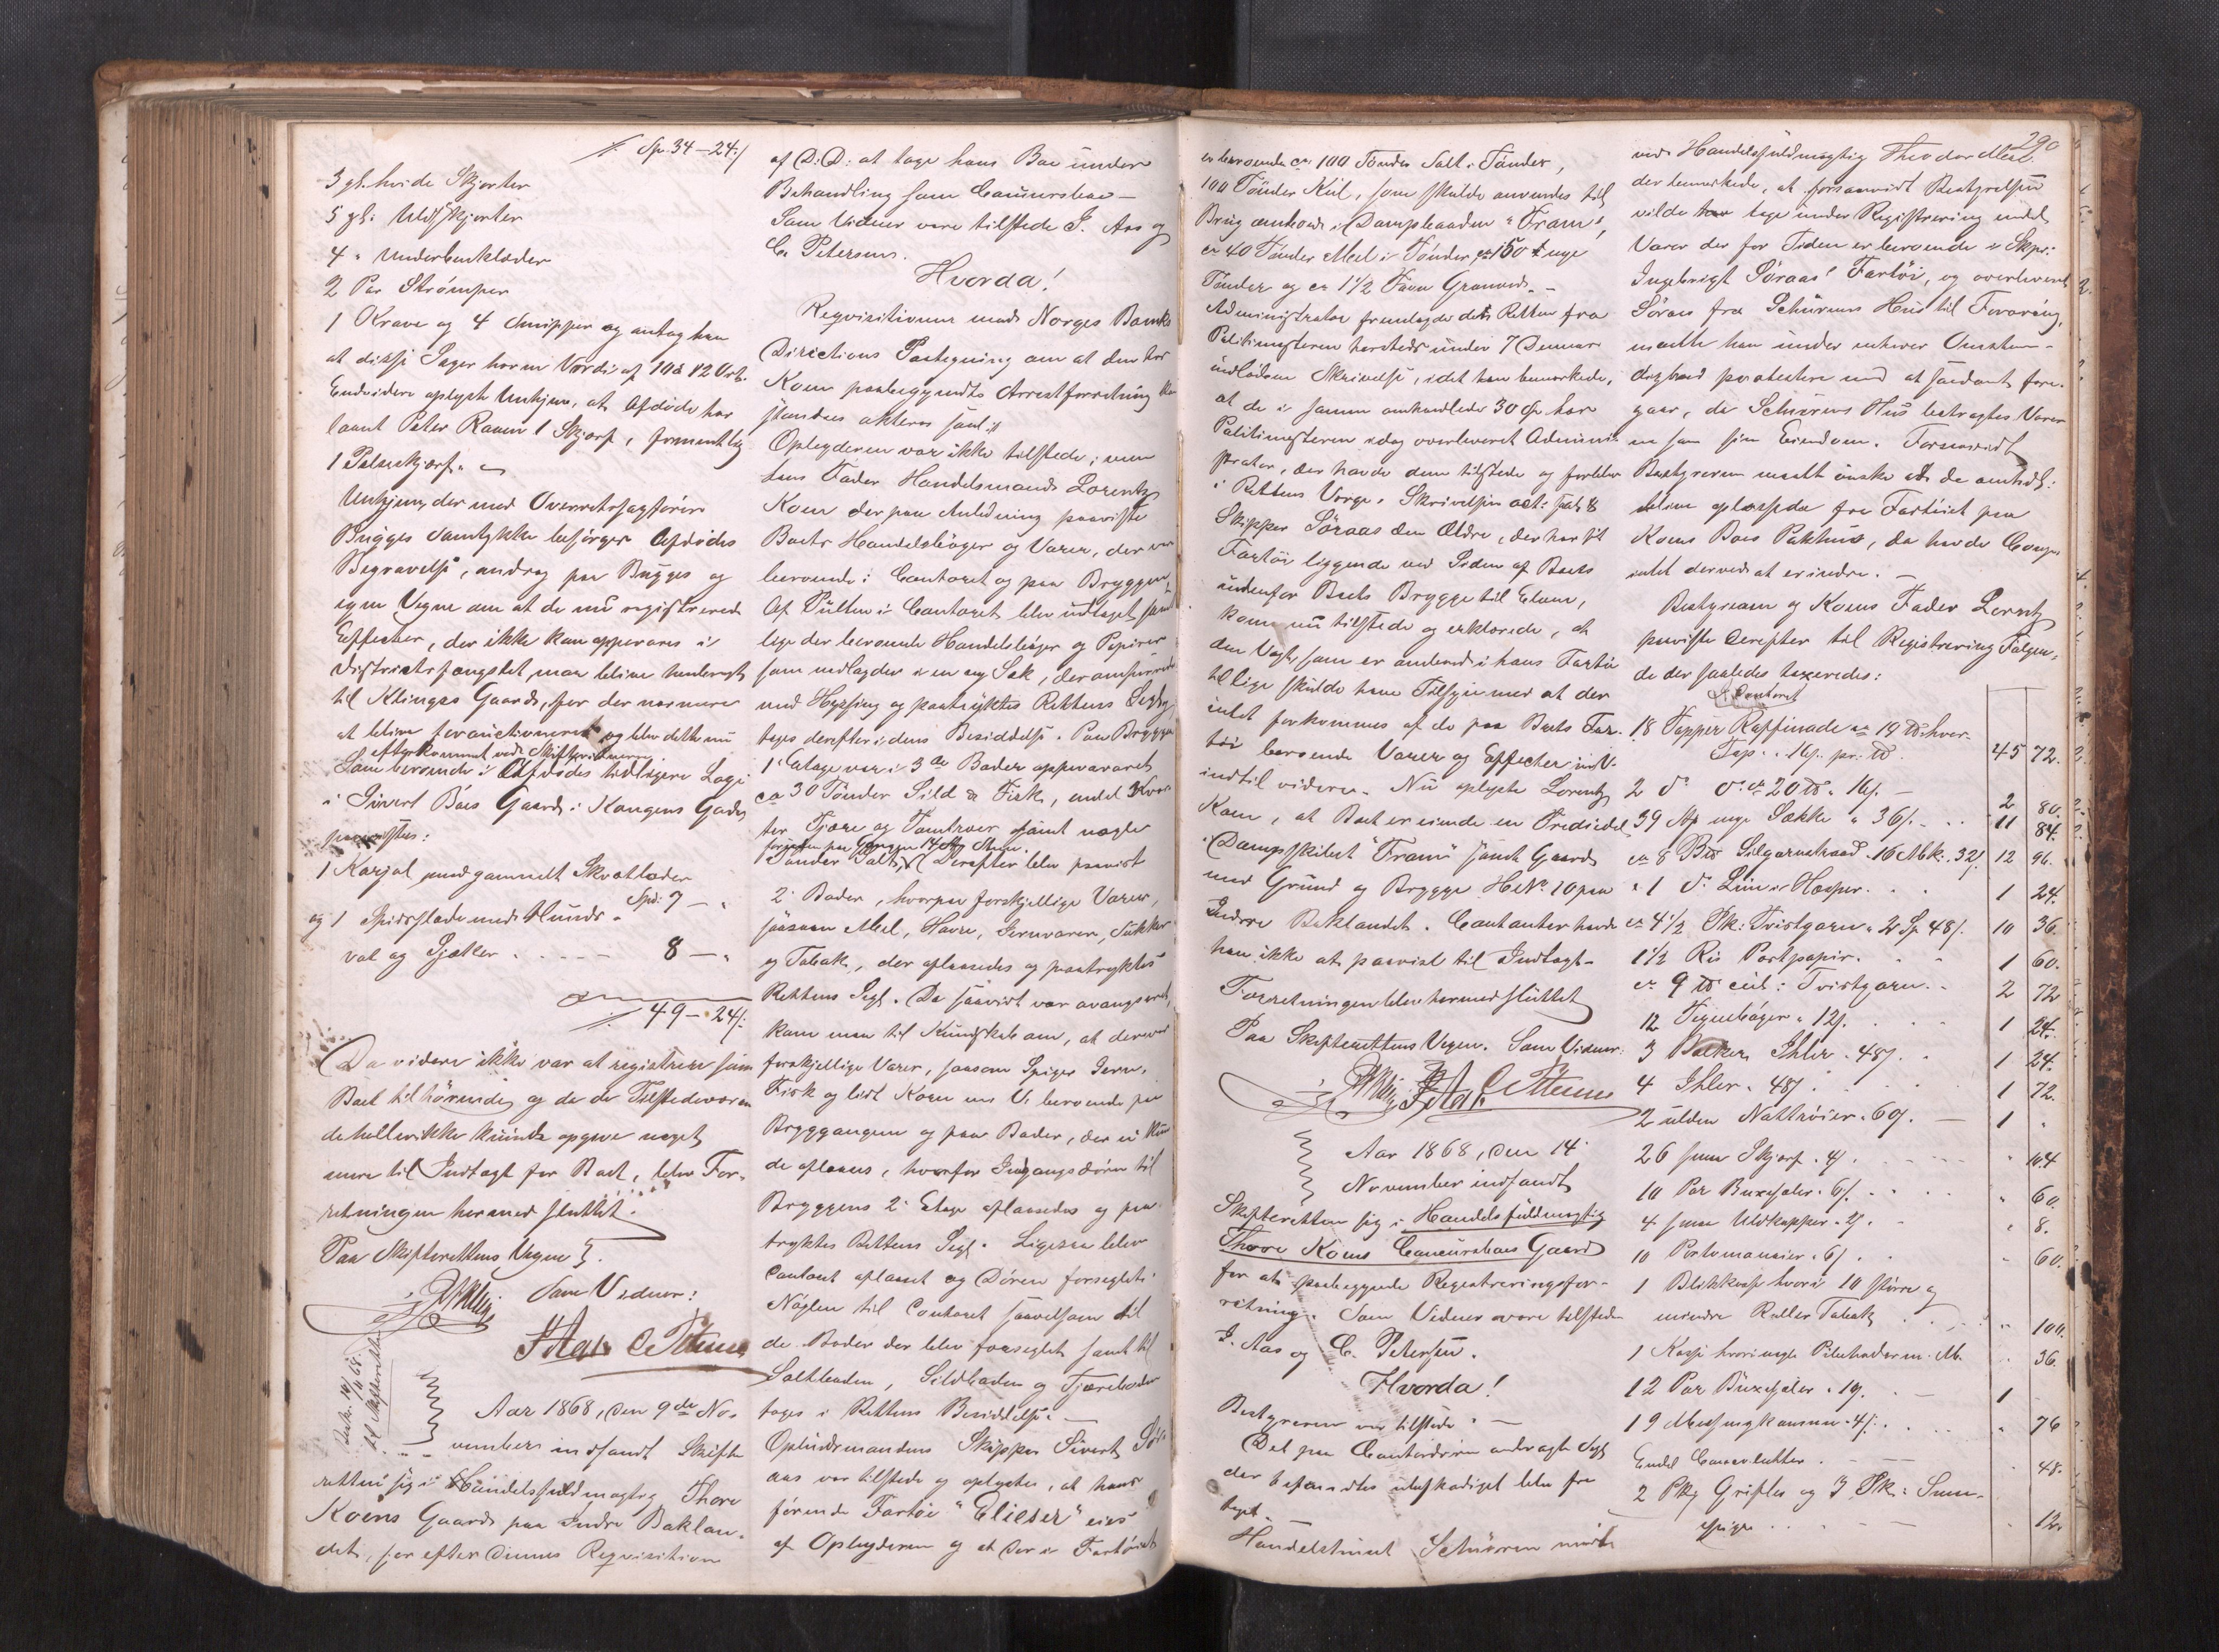 /. Sp. 34 – 24 /
3 gl. hvide Skjorter
5 gl: Uldskjorter
4 " Underbenklæder
2 Par Strömper
1 Krave og 4 Snipper og antog han
at disse Sager har en Værdi af 10 à 12 Ort.
Endvidere oplyste Unkjær, at Afdöde har
laant Peter Raaen 1 Skjærf, formentlig
1 Pelsskjærf.
Unkjær, der med Overretssagförer
Bugges Samtykke besörger Afdödes
Begravelse, androg paa Bugges og
egne Vegne om at de nu registrerede
Effecter, der ikke kan opbevares i
Districtsfængslet, maa blive henbragt
til Klinges Gaard, for der nærmere
at blive forauctioneret og blev dette nu
efterkommet ved Skifteretten
Som beroende i Afdödes tidligere Logi
i Sivert Böes Gaard i Kongens Gade
paavistes:
1 Karjol med gammelt Skvætlæder
Spd: 7 – "
og 1 Spidsslæde med Hunds-
val og Bjælder . . . . 8 – "
/. 49 – 24 /:
Da videre ikke var at registrere som
Boet tilhörende og da de Tilstedeværen-
de heller ikke kunde opgive noget
mere til Indtægt for Boet, blev For-
retningen hermed sluttet.
Paa Skifterettens Vegne
Som Vidner:
J Aas C Petersen
Aar 1868, den 9de No-
vember indfandt Skifte
retten sig i Handelsfuldmægtig Thore
Koens Gaard paa Indre Baklan-
det, for efter dennes Reqvisition
af D: D: at tage hans Bo under
Behandling som Concursbo –
Som Vidner vare tilstede J. Aas og
C. Petersen.
Hvorda!
Reqvisitionen med Norges Banks
Directions Paategning om at den hos
Koen paabegyndte Arrestforretning
standses akteres saal:
Opbyderen var ikke tilstede; men
hans Fader Handelsmand Lorentz
Koen der paa Anledning paaviste
Boets Handelsböger og Varer, der var
beroende i Contoret og paa Bryggen.
Af Pulten i Contoret blev udtaget samt
lige der beroende Handelsböger og Papirer
som nedlagdes i en ny Sæk, der
med Hyssing og paatryktes Rettens Segl,
toges derefter i dens Besiddelse. Paa Bryggens
1ste Etage var i 3de Boder opbevaret
ca 30 Tönder Sild & Fisk, endel
ter Tjære og samt nogle
Tönder Salt. Derefter blev paavist
2 Boder, hvorpaa forskjellige Varer,
saasom Meel, Havre, Jernvarer, Sukker
og Tobak, der aflaasedes og paatryktes
Rettens Segl. Da saavidt var avangseret,
kom man til Kundskab om, at der var
forskjellige Varer, saasom Spiger Jern,
Fisk og lidt Korn m V. beroende paa
Bryggangen og paa Boder, der ei kun
de aflaases, hvorfor Indgangsdören til
Bryggens 2 Etage aflaasedes og paa
tryktes Rettens Segl. Ligesaa blev
Contoret aflaaset og Dören forseglet.
Nöglen til Contoret saavelsom til
de Boder der blev forseglet samt til
Saltboden, Sildboden og Tjæreboden
toges i Rettens Besiddelse. –
Opbudsmandens Skipper Sivert Sör-
aas var tilstede og oplyste, at hans
förende Fartöi "Elieser" eies
af Opbyderen og at der i Fartöiet
290
er beroende ca. 100 Tönder Salt i Tönder,
100 Tönder Kul, som skulde anvendes til
Brug ombord i Dampbaaden "Fram",
ca 40 Tönder Meel i Tönder ca 150 nye
Tönder og ca 1 1/2 Favn Granved. –
Administrator fremlagde det Retten fra
Politimesteren hersteds under 7 Dennes
indlödne Skrivelse, idet han bemærkede,
at de i samme omhandlede 30 Sp har
Politimesteren idag overleveret Admini-
strator, der havde dem tilstede og forblev
i Rettens Værge. Skrivelsen act: saal: 8
Skipper Söraas den Ældre, der har sit
Fartöi liggende ved Siden af Boets
udenfor Boets Brygge til Elven,
kom nu tilstede og erklærede, at
den Vagt, som er ombord i hans Fartöi
tillige skulde have Tilsyn med at der
intet forkommes af de paa Boets Far-
töi beroende Varer og Effecter indtil
indtil videre. Nu oplyste Lorentz
Koen, at Boet er eiende en Trediedel
i Dampskibet "Fram" samt Gaard
med Grund og Brygge No 10 paa
Indre Baklandet. Contanter havde
han ikke at paavise til Indtægt –
Forretningen blev hermed sluttet
Paa Skifterettens Vegne. Som Vidner:
J Aas C Petersen
Aar 1868, den 14
November indfandt
Skifteretten sig i Handelsfuldmægtig
Thore Koens Concursboes Gaard
for at paabegynde Registreringsfor-
retning. Som Vidner vare tilstede
J. Aas og C. Petersen.
Hvorda!
Bestyreren var tilstede. –
Det paa Contordören anbragte Segl
der befandtes ubeskadiget blev fra
taget.
Handelshuset Schurren mödte
ved Handelsfuldmægtig Theodor
der bemærkede, at forsaavidt Bestyrelsen
vilde tage under Registrering endel
Varer der for Tiden er beroende i Skpr:
Ingebrigt Söraas' Fartöi, og overleveret
Söraas fra Schurrens Hus til Forvaring,
maatte han under enhver Omstæn-
dighed protestere mod at saadant fore-
gaar, da Schurrens Hus betragter Varer
ne som sin Eiendom. Forsaavidt
Bestyreren maatte önske at de omhdl:
bliver oplossede fra Fartöiet paa
Koens Boes Pakhus, da havde Comp:
intet derved at erindre. –
Bestyreren og Koens Fader Lorentz
paaviste derefter til Registrering Fölgen-
de der saaledes taxeredes:
I Contoret
18 Topper Raffinade ca 19 ℔ hver
Top. 16/. pr: ℔ . 45 72.
2 do do ca 20 ℔. 16/. – 2 80.
39 nye Sække a 36/. . . 11 84.
ca 8 Silgarnstraad . 16 Mk: 32/. 12 96.
" 1 do Liin i Hasper . . 1 24.
ca 4 1/2 Pk: Tvistgarn a 2 Sp 48/. 10 36.
1 1/2 Ris Postpapir. . . 1 60.
ca 9 ℔ Tvistgarn . . 2 72
12 a 12/. . . 1 24.
3 Pakker Ihler . 48/. . 1 24.
4 Ihler . 48/ . . 1 72.
2 uldne Nattröier . 60/. – 1 "
26 smaa Skjærf . 4/. . . " 104
10 Par Buxeseler . 6/. . . " 60.
4 smaa Uldkapper . 2/. . " 8.
10 Portemonaier . 6/. . . " 60.
1 Blikkasse hvori 10 större og
mindre Ruller Tobak . . " 100.
1 Kasse hvori nogle m. M. . 36.
12 Par Buxeseler . 10/. . – 1
19 . 4/: . . . " 76
Endel . – " 48.
2 Pk: Grifler og 3 Pk: Smaa-
spiger . . . – " 12.